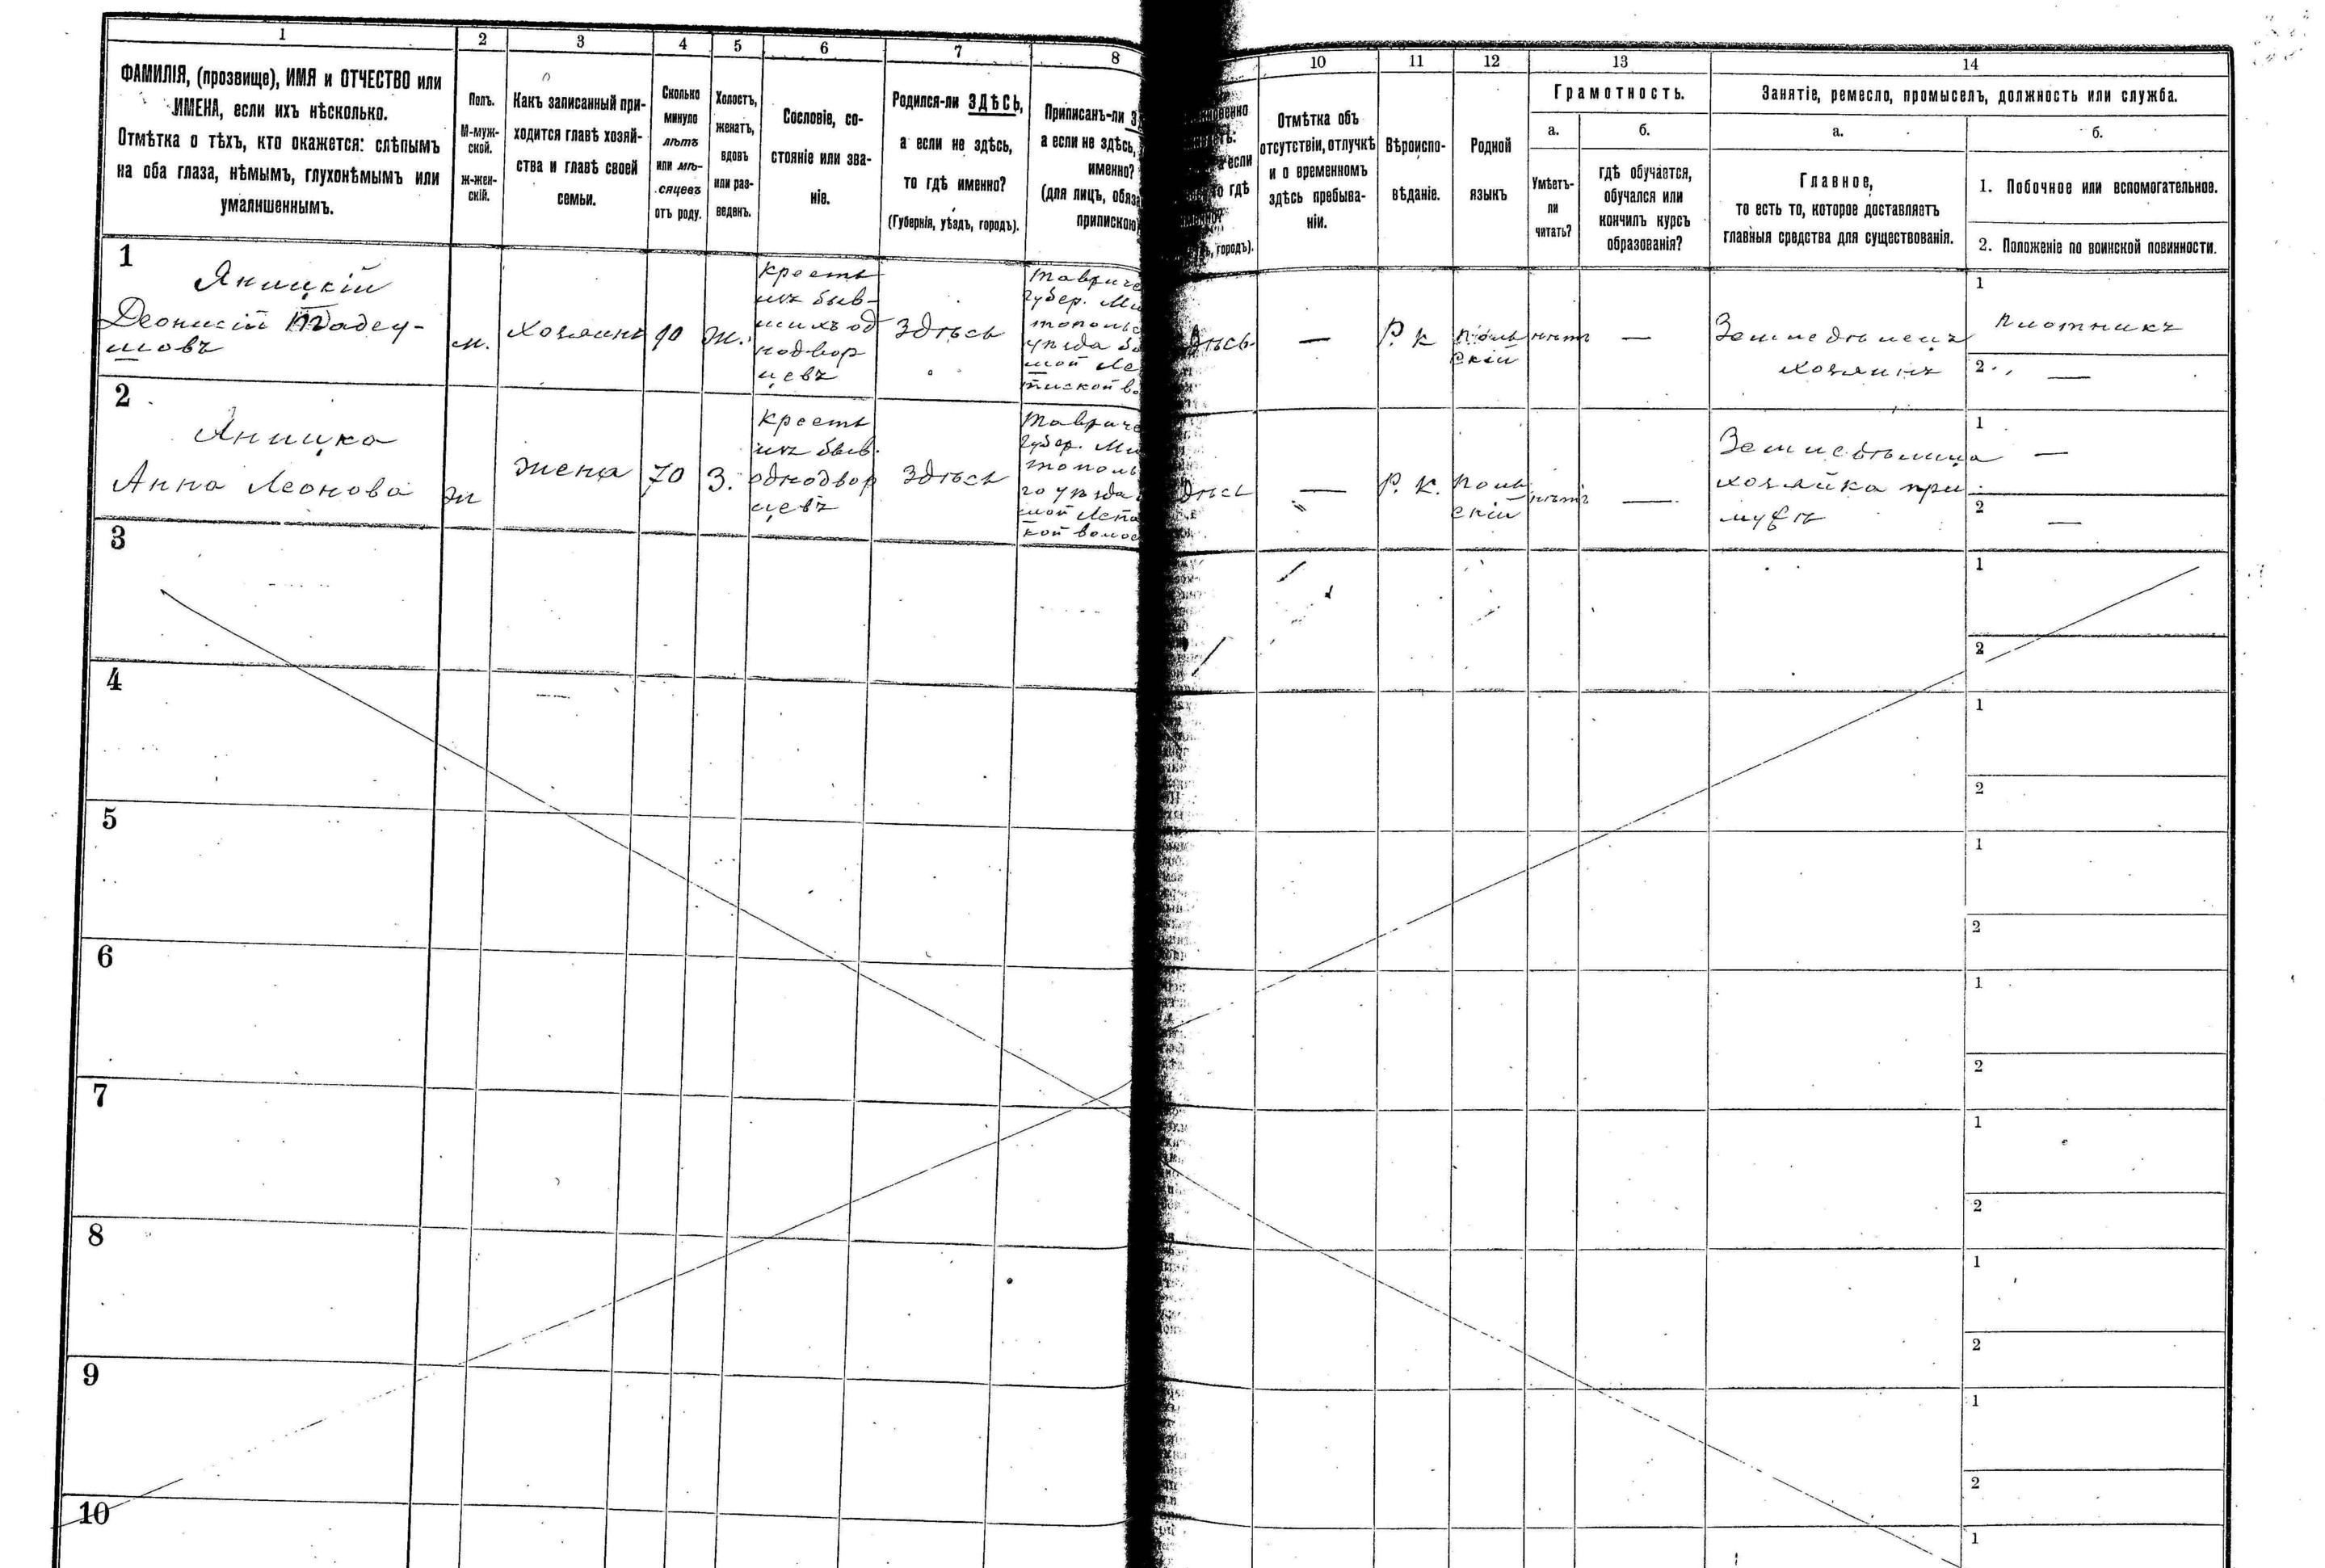 1 2 3 4 5 6 7 8 10 11 12 13 14
ФАМИЛІЯ, (прозвище), ИМЯ и ОТЧЕСТВО или
ИМЕНА, если ихъ нѣсколько.
Отмѣтка о тѣхъ, кто окажется: слѣпымъ
на оба глаза, нѣмымъ, глухонѣмымъ или
умалишеннымъ.
Полъ.
М-муж-
ской.
ж-жен-
скій.
Какъ записанный при-
ходится главѣ хозяй-
ства и главѣ своей
семьи.
Сколько
минуло
лѣтъ
или мѣ-
сяцевъ
отъ роду.
Холостъ,
женатъ,
вдовъ
или раз-
веденъ.
Сословіе, со-
стояніе или зва-
ніе.
Родился-ли ЗДѢСЬ,
а если не здѣсь,
то гдѣ именно?
(Губернія, уѣздъ, городъ).
Приписанъ-ли
а если не здѣсь,
именно?
(для лицъ, обяза
припискою
если
гдѣ
городъ).
Отмѣтка объ
отсутствіи, отлучкѣ
и о временномъ
здѣсь пребыва-
ніи.
Вѣроиспо-
вѣданіе.
Родной
языкъ
Грамотность.
а.
Умѣетъ-
ли
читать?
б.
гдѣ обучается,
обучался или
кончилъ курсъ
образованія?
Занятіе, ремесло, промыселъ, должность или служба.
а.
Главное,
то есть то, которое доставляетъ
главныя средства для существованія.
б.
1. Побочное или вспомогательное.
2. Положеніе по воинской повинности.
1
Яницкій
Деонисій Тадеу-
шовъ
м.
хозяинъ
ж.
крест
изъ быв-
шихъ од
нодвор
цевъ
здѣсь
Тавриче
губер. Ми
тополь
уѣзда
шой Ле
тиской в
дѣсь
—
Р. к
поль
скій
нѣтъ
—
Земледѣлецъ
хозяинъ
1
плотникъ
2
—
2
Яницка
Анна Леонова
ж
жена
70
З.
крест
изъ быв.
однодвор
цевъ
здѣсь
Тавриче
губер. Ми
тополь
го уѣзда
шой Лепа
кой волос
дѣсь
—
Р. К.
поль
скій
нѣтъ
—
Земледѣлица
хозяйка при
мужѣ
1
—
2
—
3
1
2
4
1
2
5
1
2
6
1
2
7
1
2
8
1
2
9
1
2
10
1